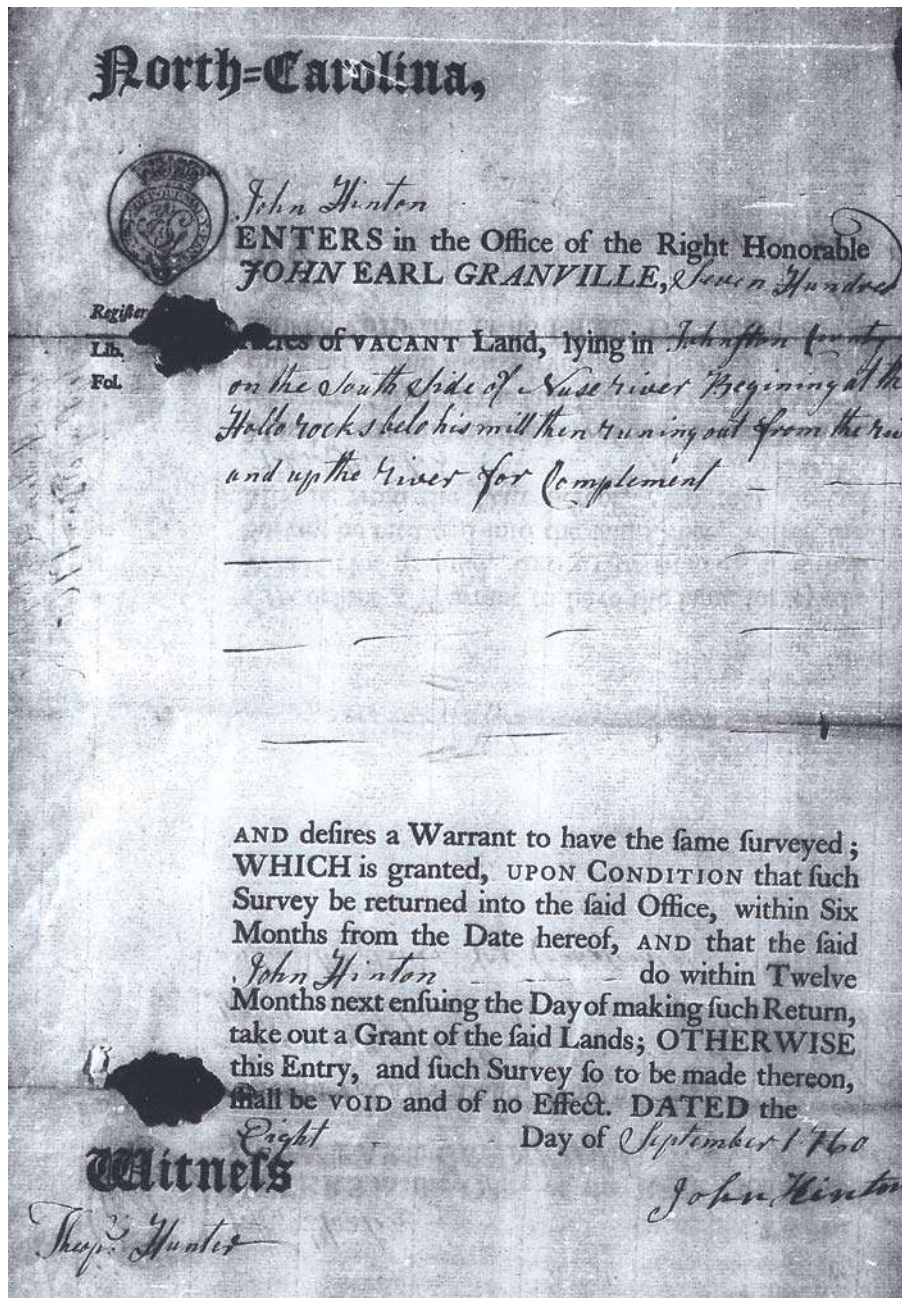 North=Carolina,
John Hinton
ENTERS in the Office of the Right Honorable
JOHN EARL GRANVILLE, Seven Hundred
Regiſter
Acres of VACANT Land, lying in Johnſton County
Lib.
Fol.
on the South Side of Nuse river Begining at th
Hollo rocks belo his mill then runing out from the riv
and up the river for Complement
AND deſires a Warrant to have the ſame ſurveyed;
WHICH is granted, UPON CONDITION that ſuch
Survey be returned into the ſaid Office, within Six
Months from the Date hereof, AND that the ſaid
John Hinton do within Twelve
Months next enſuing the Day of making ſuch Return,
take out a Grant of the ſaid Lands; OTHERWISE
this Entry, and ſuch Survey ſo to be made thereon,
ſhall be VOID and of no Effect. DATED the
Eight Day of September 1760
Witneſs
John Hinton
Theop.s Hunter